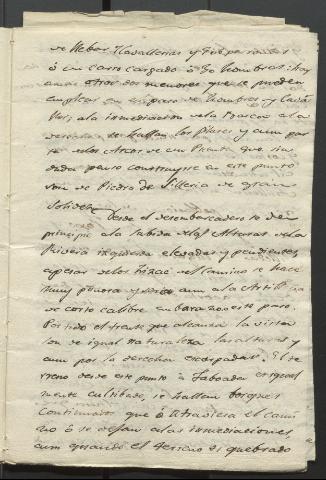 de llebar 7 Cavallerias y
ó un carro cargado ó 30 hombres: hay
otras dos menores que se pueden
emplear en el paso de hombres y
á la inmediacion de la Barca á la
derecha se hallan los Pilares y aun par
te de los Arcos de un Puente que sin
duda penso construyrse en este punto
son de Piedra de Silleria de gran
solidez
Desde el desembarcadero se da
principio á la subida de las Alturas de la
Rivera izquierda elevadas y pendientes,
apesar de los el camino se hace
muy penosa y aun á la Artilleria
de corto calibre embarazoso este paso.
Por todo el trecho que alcanza la vista
son de igual naturaleza las alturas y
aun por la derecha escarpadas. El te
rreno desde este punto á Taboada es igual
mente cultibado, se hallan bosques
continuados que ó atraviesa el cami
no ó se dejan á las inmediaciones,
aun quando el terreno es quebrado